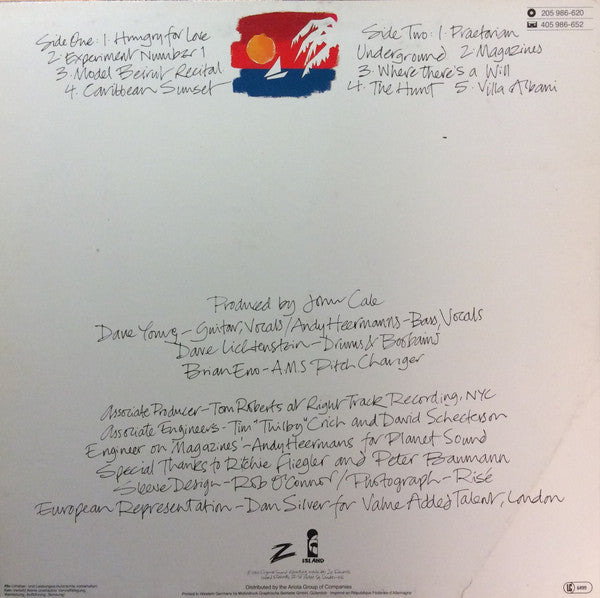 Side One: 1. Hungry for Love
2. Experiment Number 1
3. Model Beirut Recital
4. Caribbean Sunset
Side Two: 1. Praetorian
Underground 2. Magazines
3. Where There's a Will
4. The Hunt 5. Villa Albani
205 986-620
405 986-652
Produced by John Cale
Dave Young - Guitar, Vocals / Andy Heermanns - Bass, Vocals
Dave Lichtenstein - Drums & Boobams
Brian Eno - A.M.S Pitch Changer
Associate Producer - Tom Roberts at Right Track Recording, NYC
Associate Engineers - Tim "Thilby" Crich and David Schecterson
Engineer on 'Magazines' - Andy Heermans for Planet Sound
Special Thanks to Ritchie Fliegler and Peter Baumann
Sleeve Design - Rob O'Connor / Photograph - Risé
European Representation - Dan Silver for Value Added Talent, London
Z
ISLAND
Distributed by the Ariola Group of Companies
Printed in Western Germany by Mohndruck Graphische Betriebe GmbH, Gütersloh Imprimé en République Fédérale d'Allemagne
LC